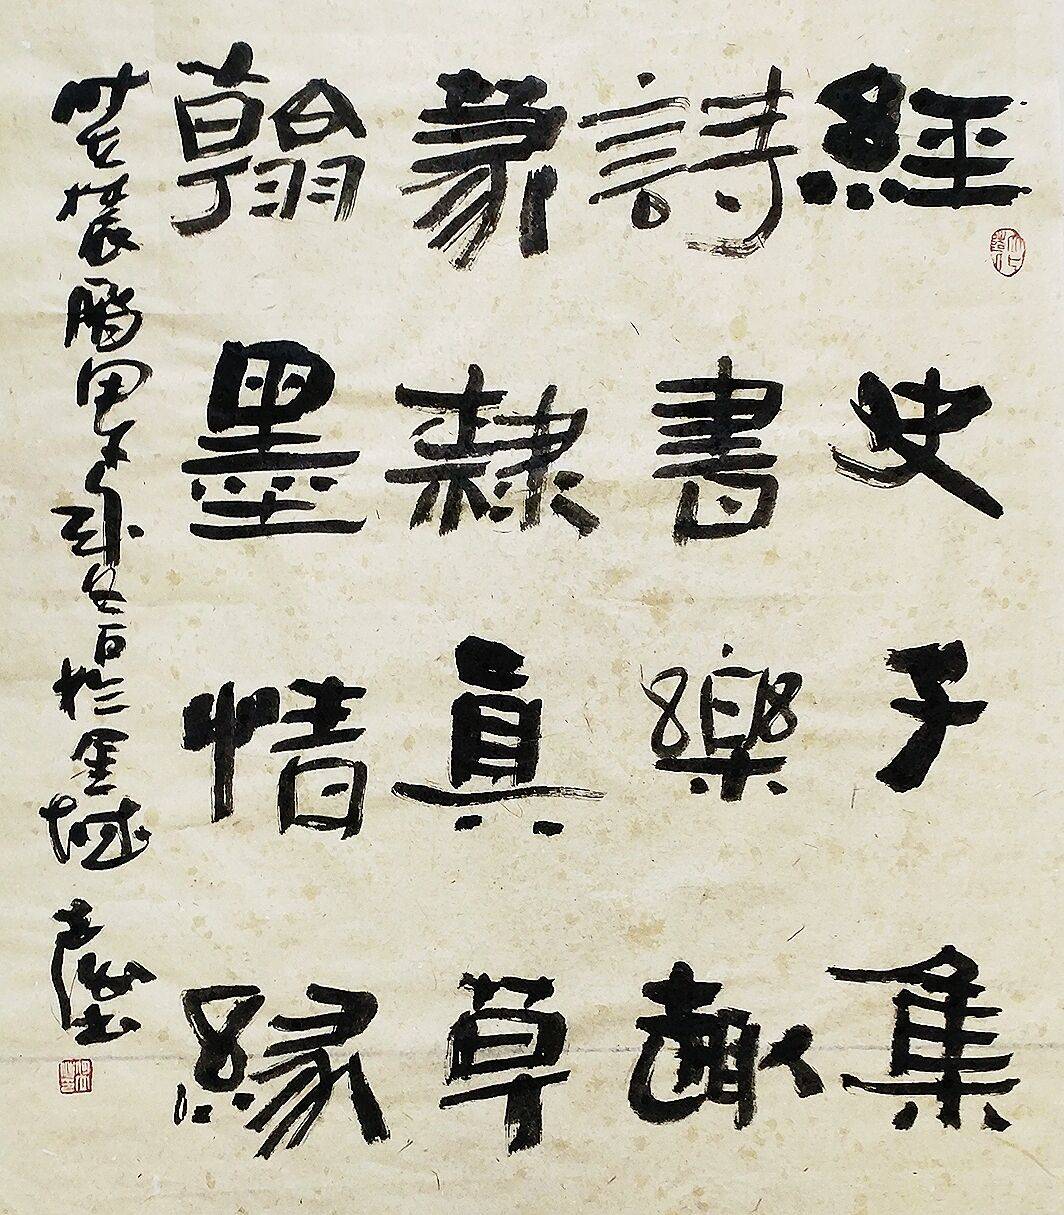 經史子集
詩書樂趣
篆隸真草
翰墨情緣
甲子 於金城